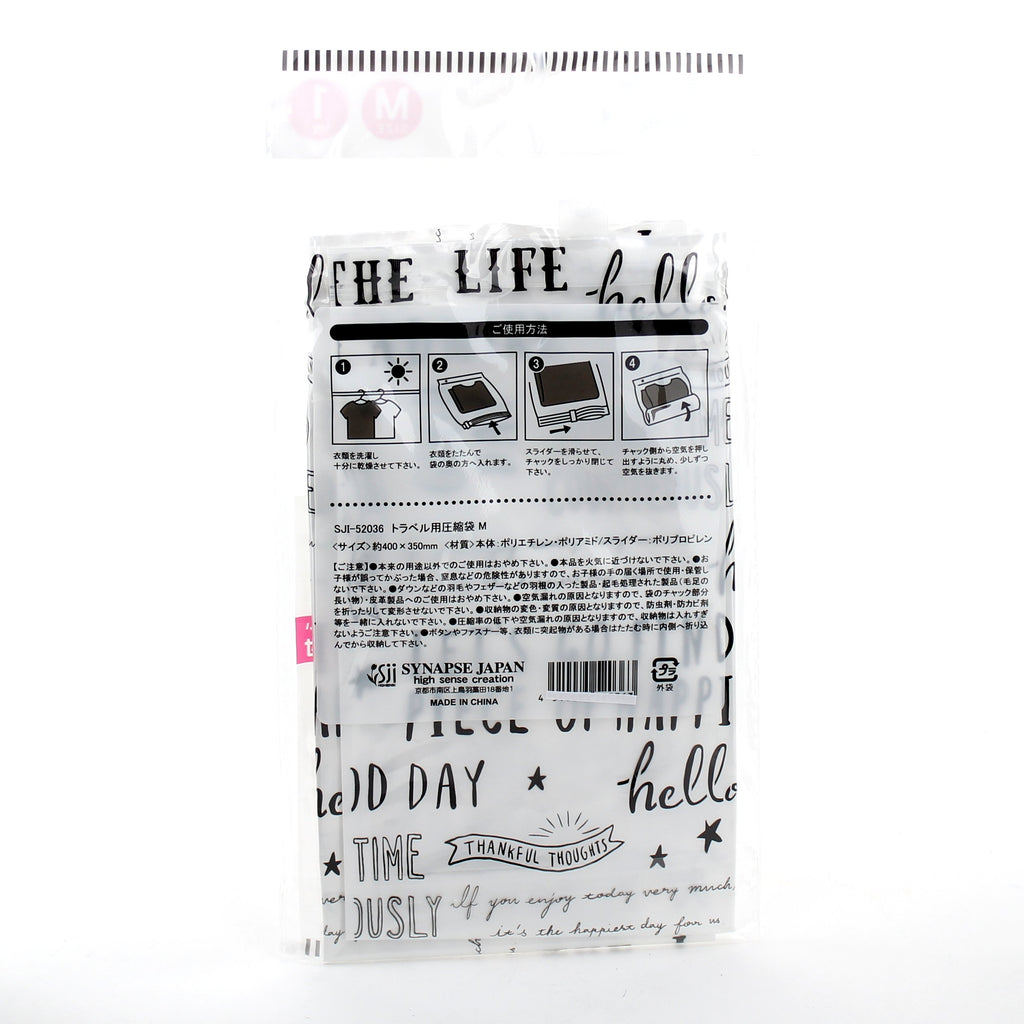 M
SIZE
THE LIFE
hello
ご使用方法
1
2
3
4
衣類を洗濯し
十分に乾燥させて下さい。
衣類をたたんで
袋の奥の方へ入れます。
スライダーを滑らせて、
チャックをしっかり閉じて
下さい。
チャック側から空気を押し
出すように丸め、少しずつ
空気を抜きます。
SJI-52036 トラベル用圧縮袋 M
<サイズ>約400×350mm <材質>本体:ポリエチレン・ポリアミド/スライダー:ポリプロピレン
【ご注意】●本来の用途以外でのご使用はおやめ下さい。●本品を火気に近づけないで下さい。●お
子様が誤ってかぶった場合、窒息などの危険性がありますので、お子様の手の届く場所で使用・保管し
ないで下さい。●ダウンなどの羽毛やフェザーなどの羽根の入った製品・起毛処理された製品(毛足の
長い物)・皮革製品へのご使用はおやめ下さい。●空気漏れの原因となりますので、袋のチャック部分
を折ったりして変形させないで下さい。●収納物の変色・変質の原因となりますので、防虫剤・防カビ剤
等を一緒に入れないで下さい。●圧縮率の低下や空気漏れの原因となりますので、収納物は入れすぎ
ないようご注意下さい。●ボタンやファスナー等、衣類に突起物がある場合はたたむ時に内側へ折り込
んでから収納して下さい。
sji SYNAPSE JAPAN
high sense creation
京都市南区上鳥羽藁田18番地1
MADE IN CHINA
プラ
外袋
PIECE OF HAPPI
OD DAY
hello
TIME
THANKFUL THOUGHTS
OUSLY
If you enjoy today very much,
it's the happiest day for us